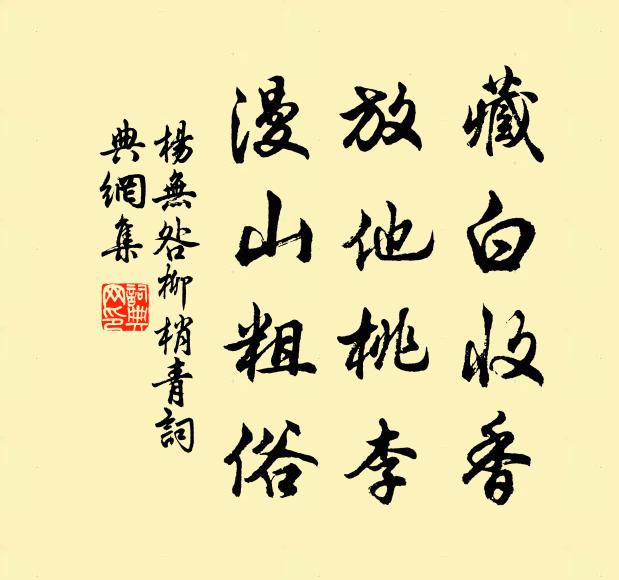 藏白收香
放他桃李
漫山粗俗
楊無咎柳梢青詞
典網集
詞典
网印